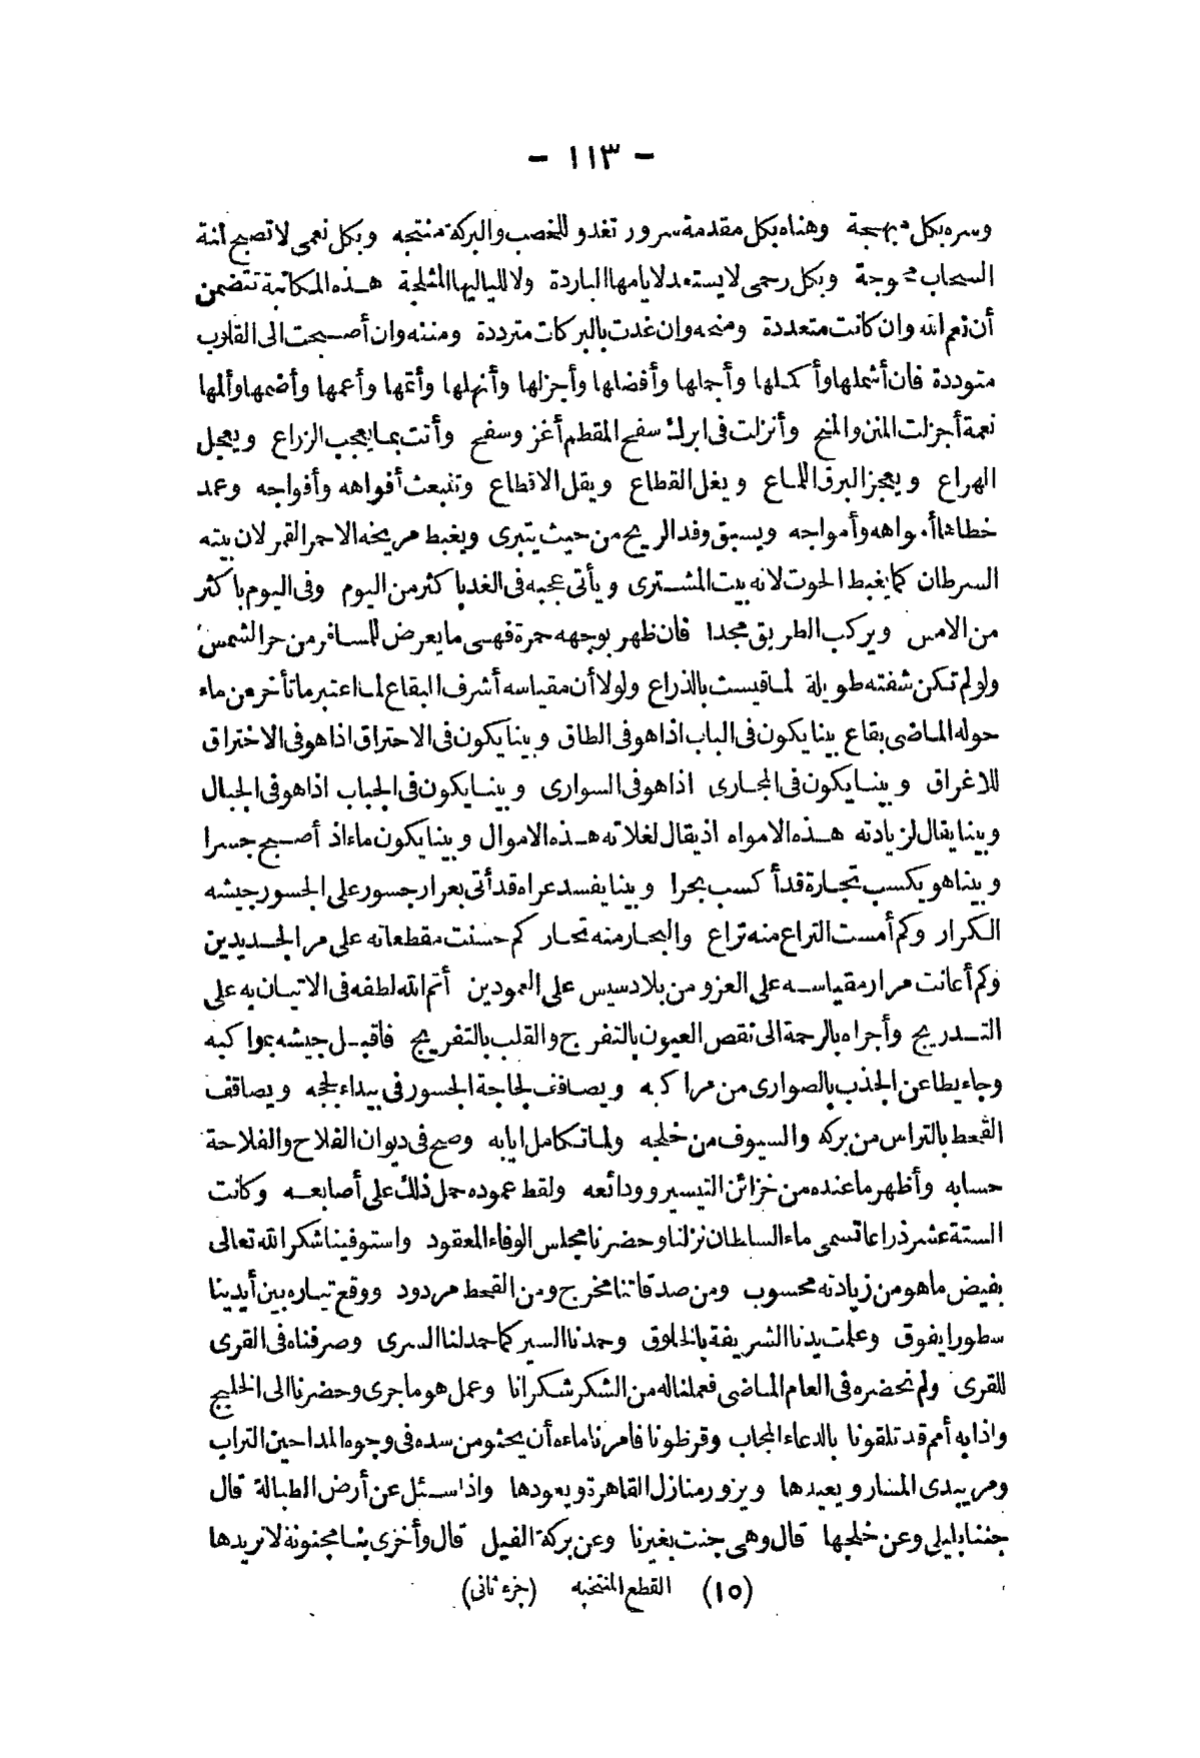 - ١١٣ -
وسره بكل مبهجة وهناه بكل مقدمة سرور تغدو للخصب والبركة منتجه وبكل نعمى لا تصبح لمنة
السحاب محوجة وبكل رحمى لا يستعد لايامها الباردة ولا لياليها المثلجة هذه المكاتبة تتضمن
أن نعم الله وان كانت متعددة ومنحه وإن غدت بالبركات مترددة ومننه وان أصبحت الى القلوب
متوددة فان أشملها وأكملها وأجملها وأفضلها وأجزلها وأنهلها وأتمها وأعمها وأضمها وألمها
نعمة أجزلت المنن والمنح وأنزلت فى ابرك سفح المقطم أغز وسفح وأتت بما يعجب الزراع ويعجل
الهراع ويعجز البرق اللماع ويغل القطاع ويقل الاقطاع وتنبعث أفواهه وأفواجه وعد
خطاها أمواهه وأمواجه ويسبق وفد الريح من حيث يتبرى ويغبط مريخه الاحمر القمر لان بيته
السرطان كما يغبط الحوت لانه بيت المشترى ويأتى عجبه فى الغد باكثر من اليوم وفى اليوم باكثر
من الامس ويركب الطريق مجدا فان ظهر بوجهه حمرة فهى ما يعرض للمسافر من حر الشمس
ولو لم تكن شقته طويلة لما قيست بالذراع ولولا أن مقياسه أشرف البقاع لما اعتبر ما تأخر عن ماء
حوله الماضى بقاع بينا يكون فى الباب اذا هو فى الطاق وبينا يكون فى الاحتراق اذا هو فى الاختراق
للاغراق وبينا يكون فى المجارى اذا هو فى السوارى وبينا يكون فى الجباب اذا هو فى الجبال
وبينا يقال لزيادته هذه الامواه اذ يقال لغلاته هذه الاموال وبينا يكون ماء اذ أصبح جسرا
وبينا هو يكسب تجارة قد أكسب بحرا وبينا يفسد عراه قد أتى بعرار جسور على الجسور جيشه
الكرار وكم أمست التراع منه تراع والبحار منه تحار كم حسنت مقطعاته على مر الجديدين
وكم أعانت مرار مقياسه على الغزو من بلاد سيس على العمودين أتم الله لطفه فى الاتيان به على
التدريج وأجراه بالرحمة الى نقص العيون بالتفرج والقلب بالتفريج فاقبل جيشه بمواكبه
وجاء يطاعن الجدب بالصوارى من مراكبه ويصافف لحاجة الجسور فى بيداء لججه ويصاقف
القحط بالتراس من بركه والسيوف من خلجه ولما تكامل ايابه وصح فى ديوان الفلاح والفلاحة
حسابه وأظهر ما عنده من خزائن التيسير وودائعه ولقط عموده حمل ذلك على أصابعه وكانت
الستة عشر ذراعا تسمى ماء السلطان نزلنا وحضرنا مجلس الوفاء المعقود واستوفينا شكر الله تعالى
بفيض ما هو من زيادته محسوب ومن صدقاتنا مخرج ومن القحط مردود ووقع تياره بين أيدينا
سطورا يفوق وعلت يدنا الشريفة بالخلوق وحمدنا السير كما حمد لنا السرى وصرفناه فى القرى
للقرى ولم نحضره فى العام الماضى فعملنا له من الشكر شكرانا وعمل هو ما جرى وحضرنا الى الخليج
واذا به أمم قد تلقونا بالدعاء المجاب وقرظونا فامرنا ماءه أن يحثو من سده فى وجوه المداحين التراب
ومر يبدى المسار ويعيدها ويزور منازل القاهرة ويعودها واذا سئل عن أرض الطبالة قال
جننا بليلى وعن خلجها قال وهى جنت بغيرنا وعن بركة الفيل قال وأخرى بنا مجنونة لا نريدها
(١٥) القطع المنتخبه (جزء ثانى)